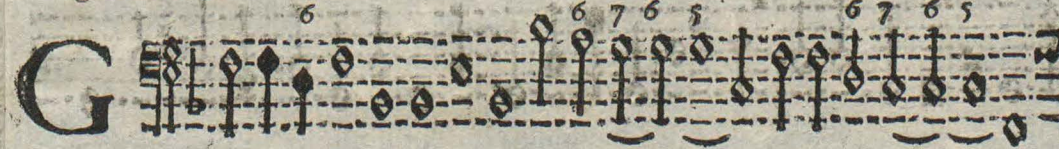 6 6 7 6 5 6 7 6 5
G